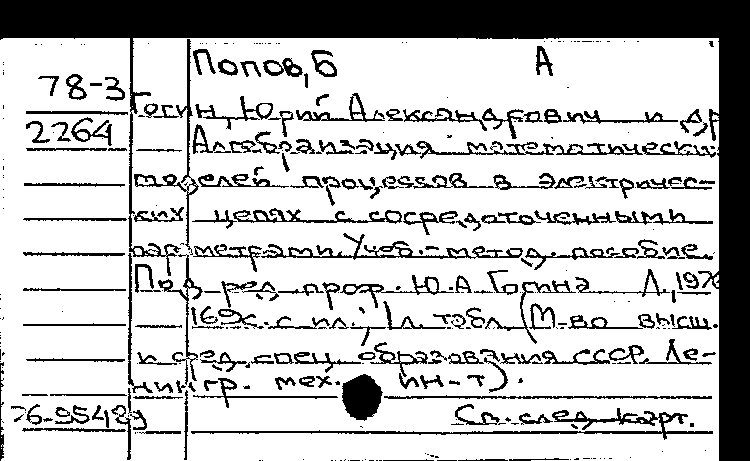 Попов, Б А
78-3
Гогин, Юрий Александрович и др
2264
Алгебраизация математических
моделей процессов в электричес-
ких цепях с сосредоточенными
параметрами. Учеб.-метод. пособие.
Под ред. проф. Ю.А. Гогина Л., 1976
169с. с ил.; 1л. табл. (М-во высш.
и сред. спец. образования СССР. Ле-
нингр. мех. ин-т).
76-95489 См. след. карт.